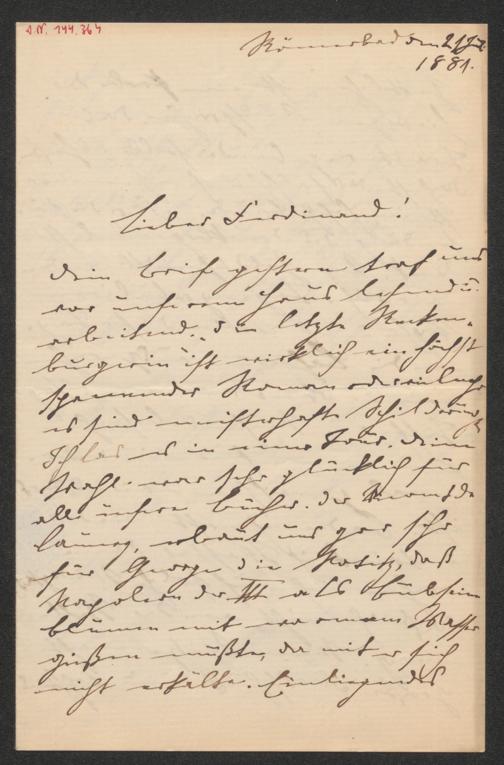 J. N. 144.364
Römerbad den 21/Juli
1881.
Lieber Ferdinand!
Dein Brief gestern traf uns
vor unserem Haus lesend u.
arbeitend. „Die letzte Recken-
burgerin ist wirklich ein höchst
spannender Roman
es sind meisterhafte Schilderung
Ich las es in einer Tour. Deine
Wahl war sehr glücklich für
alle unsere Bücher. der
erbaut uns gar sehr
für George die Notitz, daß
Napoleon der III als Bübchen
Blumen mit warmem Wasser
gießen mußte, damit er sich
nicht erkälte. Einliegendes